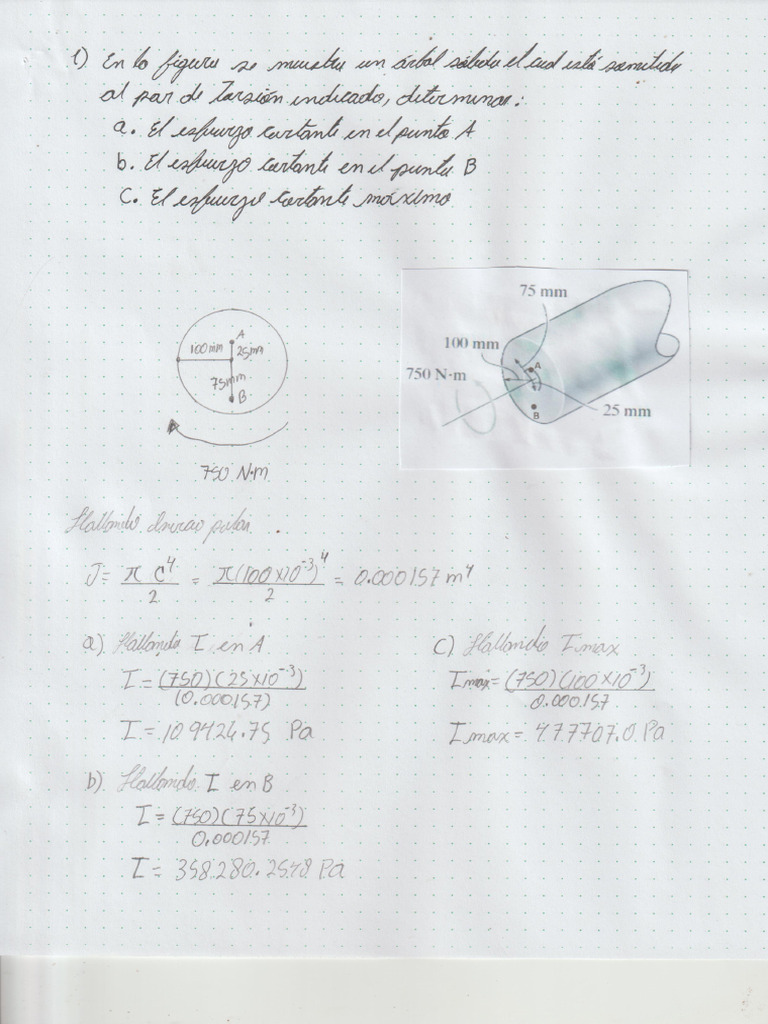 1) En la figura se muestra un árbol sólido el cual está sometido
al par de Torsión indicado, determinar:
a. El esfuerzo cortante en el punto A
b. El esfuerzo cortante en el punto B
C. El esfuerzo cortante máximo
75 mm
100 mm
750 N·m
A
B
25 mm
A
100 mm
25mm
75mm
B
750 N·m
Hallando Inercia polar...
J = π C⁴/2 = π(100x10⁻³)⁴/2 = 0.000157 m⁴
a) Hallando τ en A
τ = (750)(25x10⁻³)/(0.000157)
τ = 119426.75 Pa
C) Hallando τ max
τ max = (750)(100x10⁻³)/0.000157
τ max = 477707.0 Pa
b) Hallando τ en B
τ = (750)(75x10⁻³)/0.000157
τ = 358280.2548 Pa